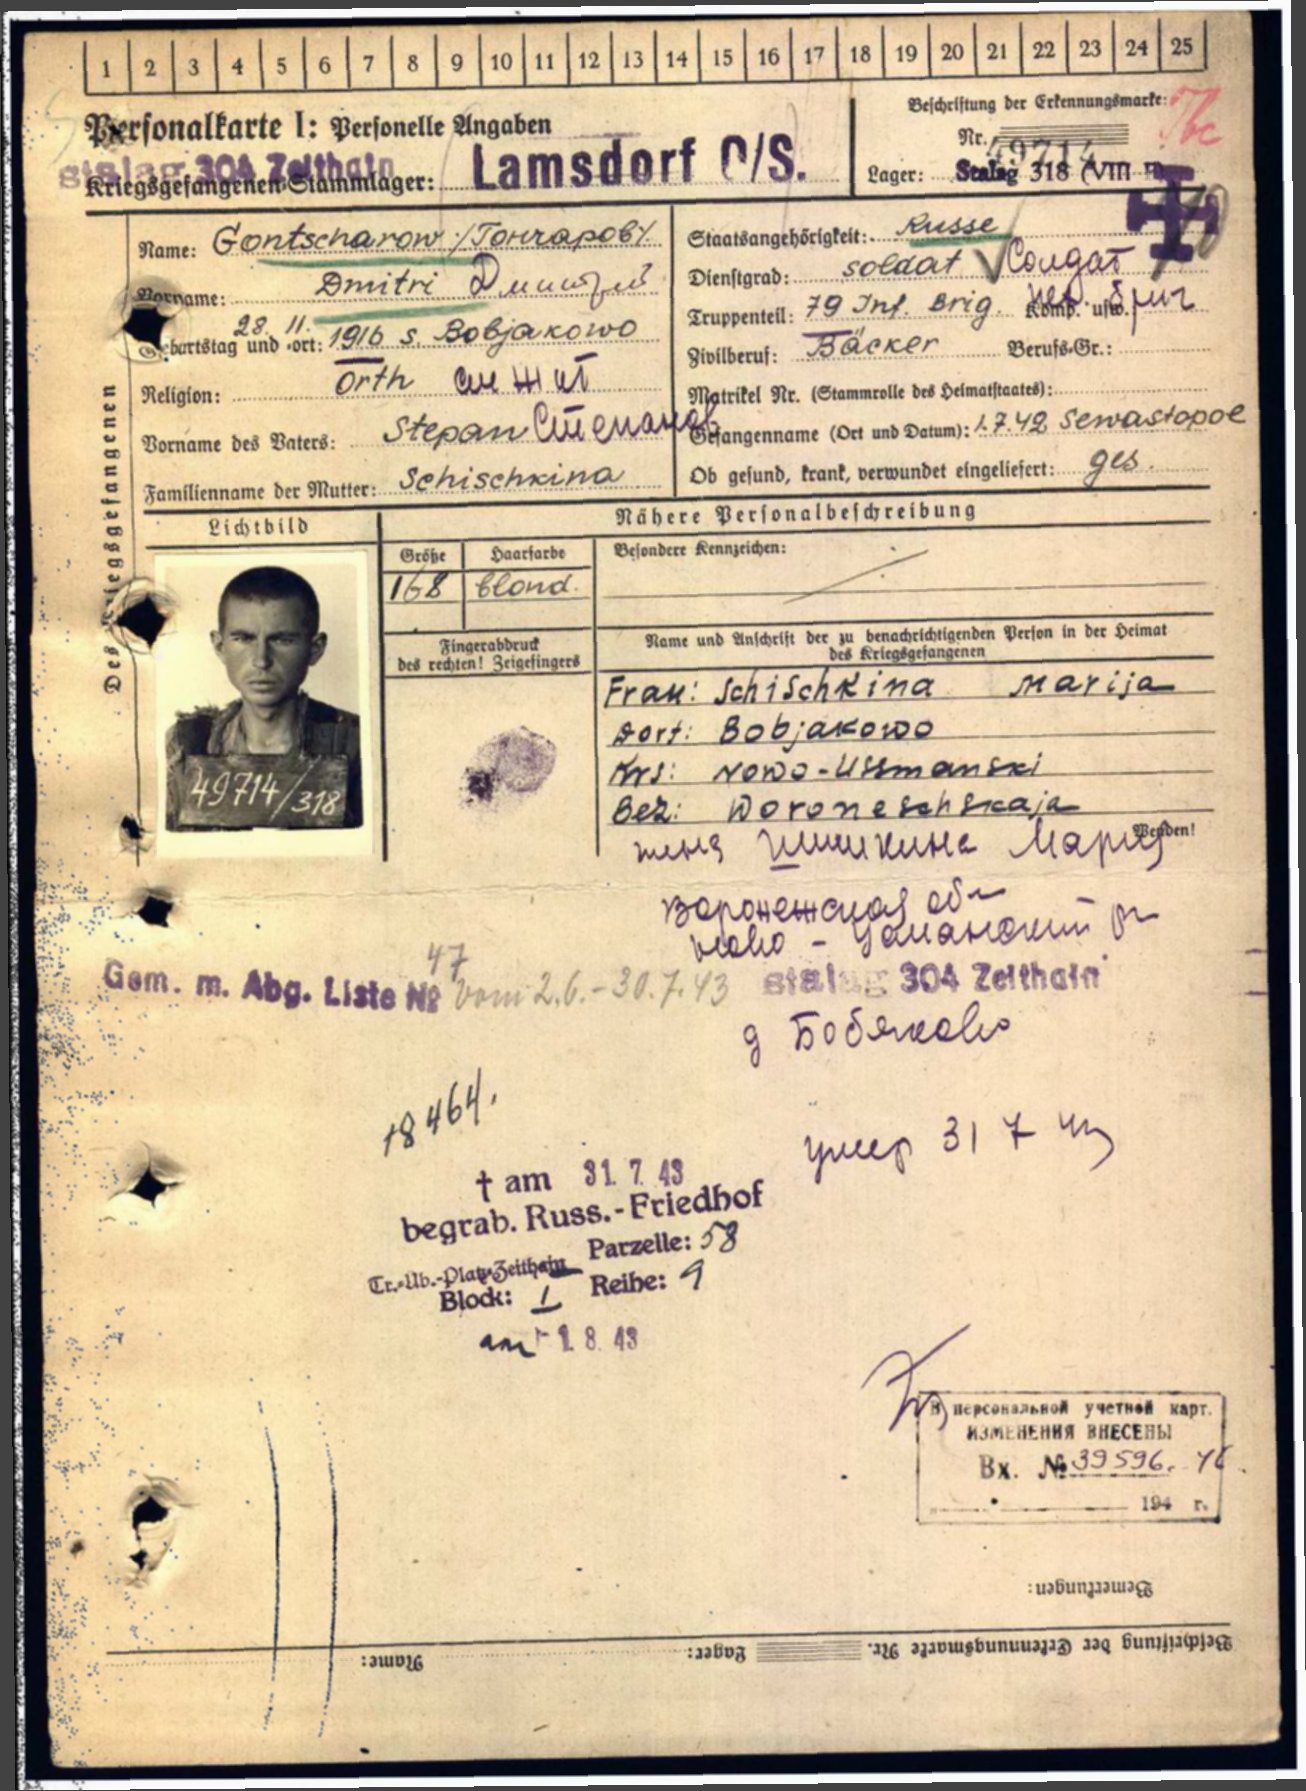 1 2 3 4 5 6 7 8 9 10 11 12 13 14 15 16 17 18 19 20 21 22 23 24 25
Personalkarte I: Personelle Angaben
Beschriftung der Erkennungsmarke:
Tbc
Stalag 304 Zeithain
Kriegsgefangenen-Stammlager: Lamsdorf O/S.
Nr. 49714
Lager: Stalag 318 (VIII
Des Kriegsgefangenen
Name: Gontscharow /Гончаров/
Vorname: Dmitri Дмитрий
Geburtstag und -ort: 28. 11. 1916 s. Bobjakowo
Religion: Orth
Vorname des Vaters: Stepan Степанов
Familienname der Mutter: Schischkina
Staatsangehörigkeit: Russe
Dienstgrad: soldat Солдат
Truppenteil: 79 Inf. Brig. Komp. usw.: бриг
Zivilberuf: Bäcker Berufs-Gr.:
Matrikel Nr. (Stammrolle des Heimatstaates):
Gefangenname (Ort und Datum): 1.7.42 Sewastopol
Ob gesund, krank, verwundet eingeliefert: ges.
Lichtbild
Nähere Personalbeschreibung
Größe Haarfarbe Besondere Kennzeichen:
168 blond.
Fingerabdruck
des rechten! Zeigefingers
Name und Anschrift der zu benachrichtigenden Person in der Heimat
des Kriegsgefangenen
Frau: Schischkina Marija
Dorf: Bobjakowo
Krs: Nowo-Ussmanski
Bez: Woroneschskaja
49714/318
Wenden!
жена Шишкина Мария
Воронежская обл
Ново-Усманский рн
Gem. m. Abg. Liste № 47 vom 2.6.-30.7.43
Stalag 304 Zeithain
д Бобяково
18464.
умер 31 7 43
† am 31. 7. 43
begrab. Russ.-Friedhof
Tr.-Üb.-Platz Zeithain Parzelle: 58
Block: 1 Reihe: 9
am 1. 8. 43
В персональной учетной карт.
ИЗМЕНЕНИЯ ВНЕСЕНЫ
Вх. № 39596. 46.
194 г.
Bemerkungen:
Beschriftung der Erkennungsmarke Nr. Lager:
Name: